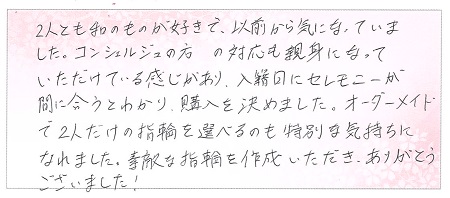 2人とも和のものが好きで、以前から気になっていま
した。コンシェルジュの方 の対応も親身になって
いただけている感じがあり、入籍日にセレモニーが
間に合うとわかり、購入を決めました。オーダーメイド
で2人だけの指輪を選べるのも特別な気持ちに
なれました。素敵な指輪を作成いただき、ありがとう
ございました!